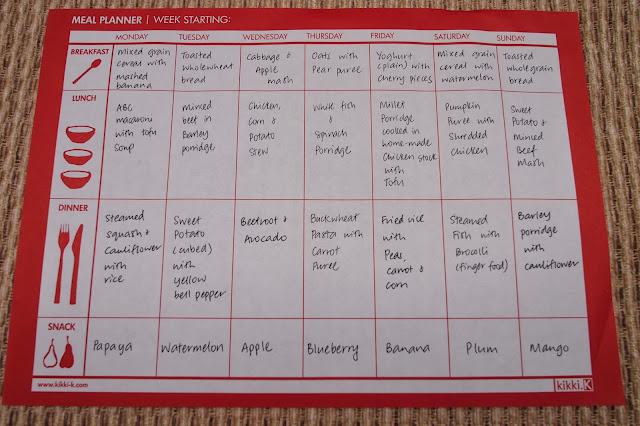 MEAL PLANNER | WEEK STARTING:
MONDAY
TUESDAY
WEDNESDAY
THURSDAY
FRIDAY
SATURDAY
SUNDAY
BREAKFAST
Mixed grain
cereal with
mashed
banana
Toasted
wholewheat
bread
Cabbage &
Apple
mash
Oats with
Pear puree
Yoghurt
(plain) with
cherry pieces
Mixed grain
cereal with
watermelon
Toasted
wholegrain
bread.
LUNCH
ABC
macaroni
with tofu
Soup
Minced
beef in
Barley
porridge
Chicken,
Corn &
Potato
Stew
White fish
&
Spinach
Porridge
Millet
Porridge
cooked in
home-made
Chicken stock
with
Tofu
Pumpkin
Puree with
Shredded
Chicken
Sweet
Potato &
Minced
Beef
Mash
DINNER
Steamed
squash &
cauliflower
with
rice
Sweet
Potato
(cubed)
with
yellow
bell pepper
Beetroot &
Avocado
Buckwheat
Pasta with
Carrot
Puree
Fried rice
with
Peas,
carrot &
corn
Steamed
Fish with
Brocolli
(finger food)
Barley
porridge
with
cauliflower
SNACK
Papaya
Watermelon
Apple
Blueberry
Banana
Plum
Mango
www.kikki-k.com
kikki.K